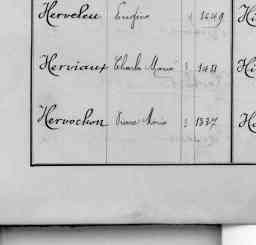 Herveleu Eugène 1849
Herviaux Charles Marie 3
Hervochon Pierre Marie 3 1837